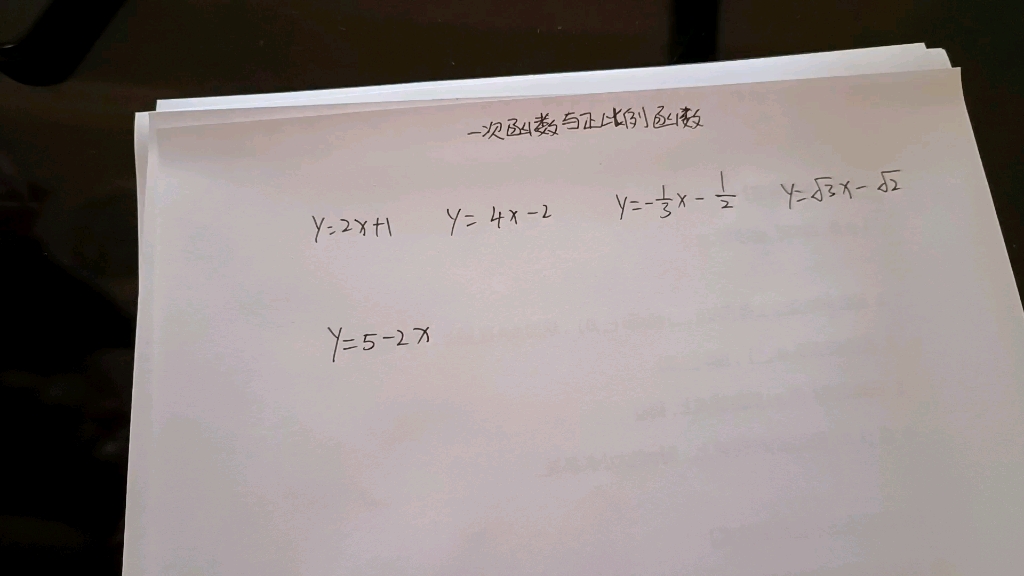 一次函数与正比例函数
y=2x+1 y=4x-2 y=-1/3x-1/2 y=√3x-√2
y=5-2x